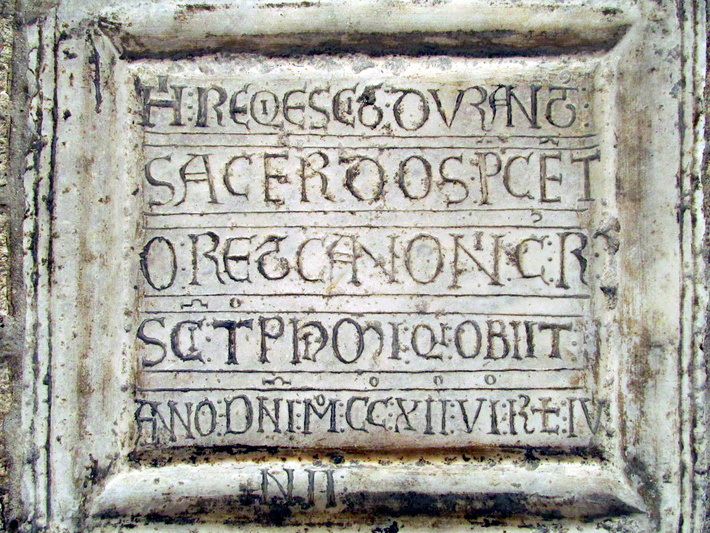 H:REQIESCIT:DVRANT:
SACERDOS:PCET
ORET CANONIC:R
SCI:TPHOMI:QI:OBIIT:
ANO:DNI:M:CC:XII:VI:KL:IV
NII